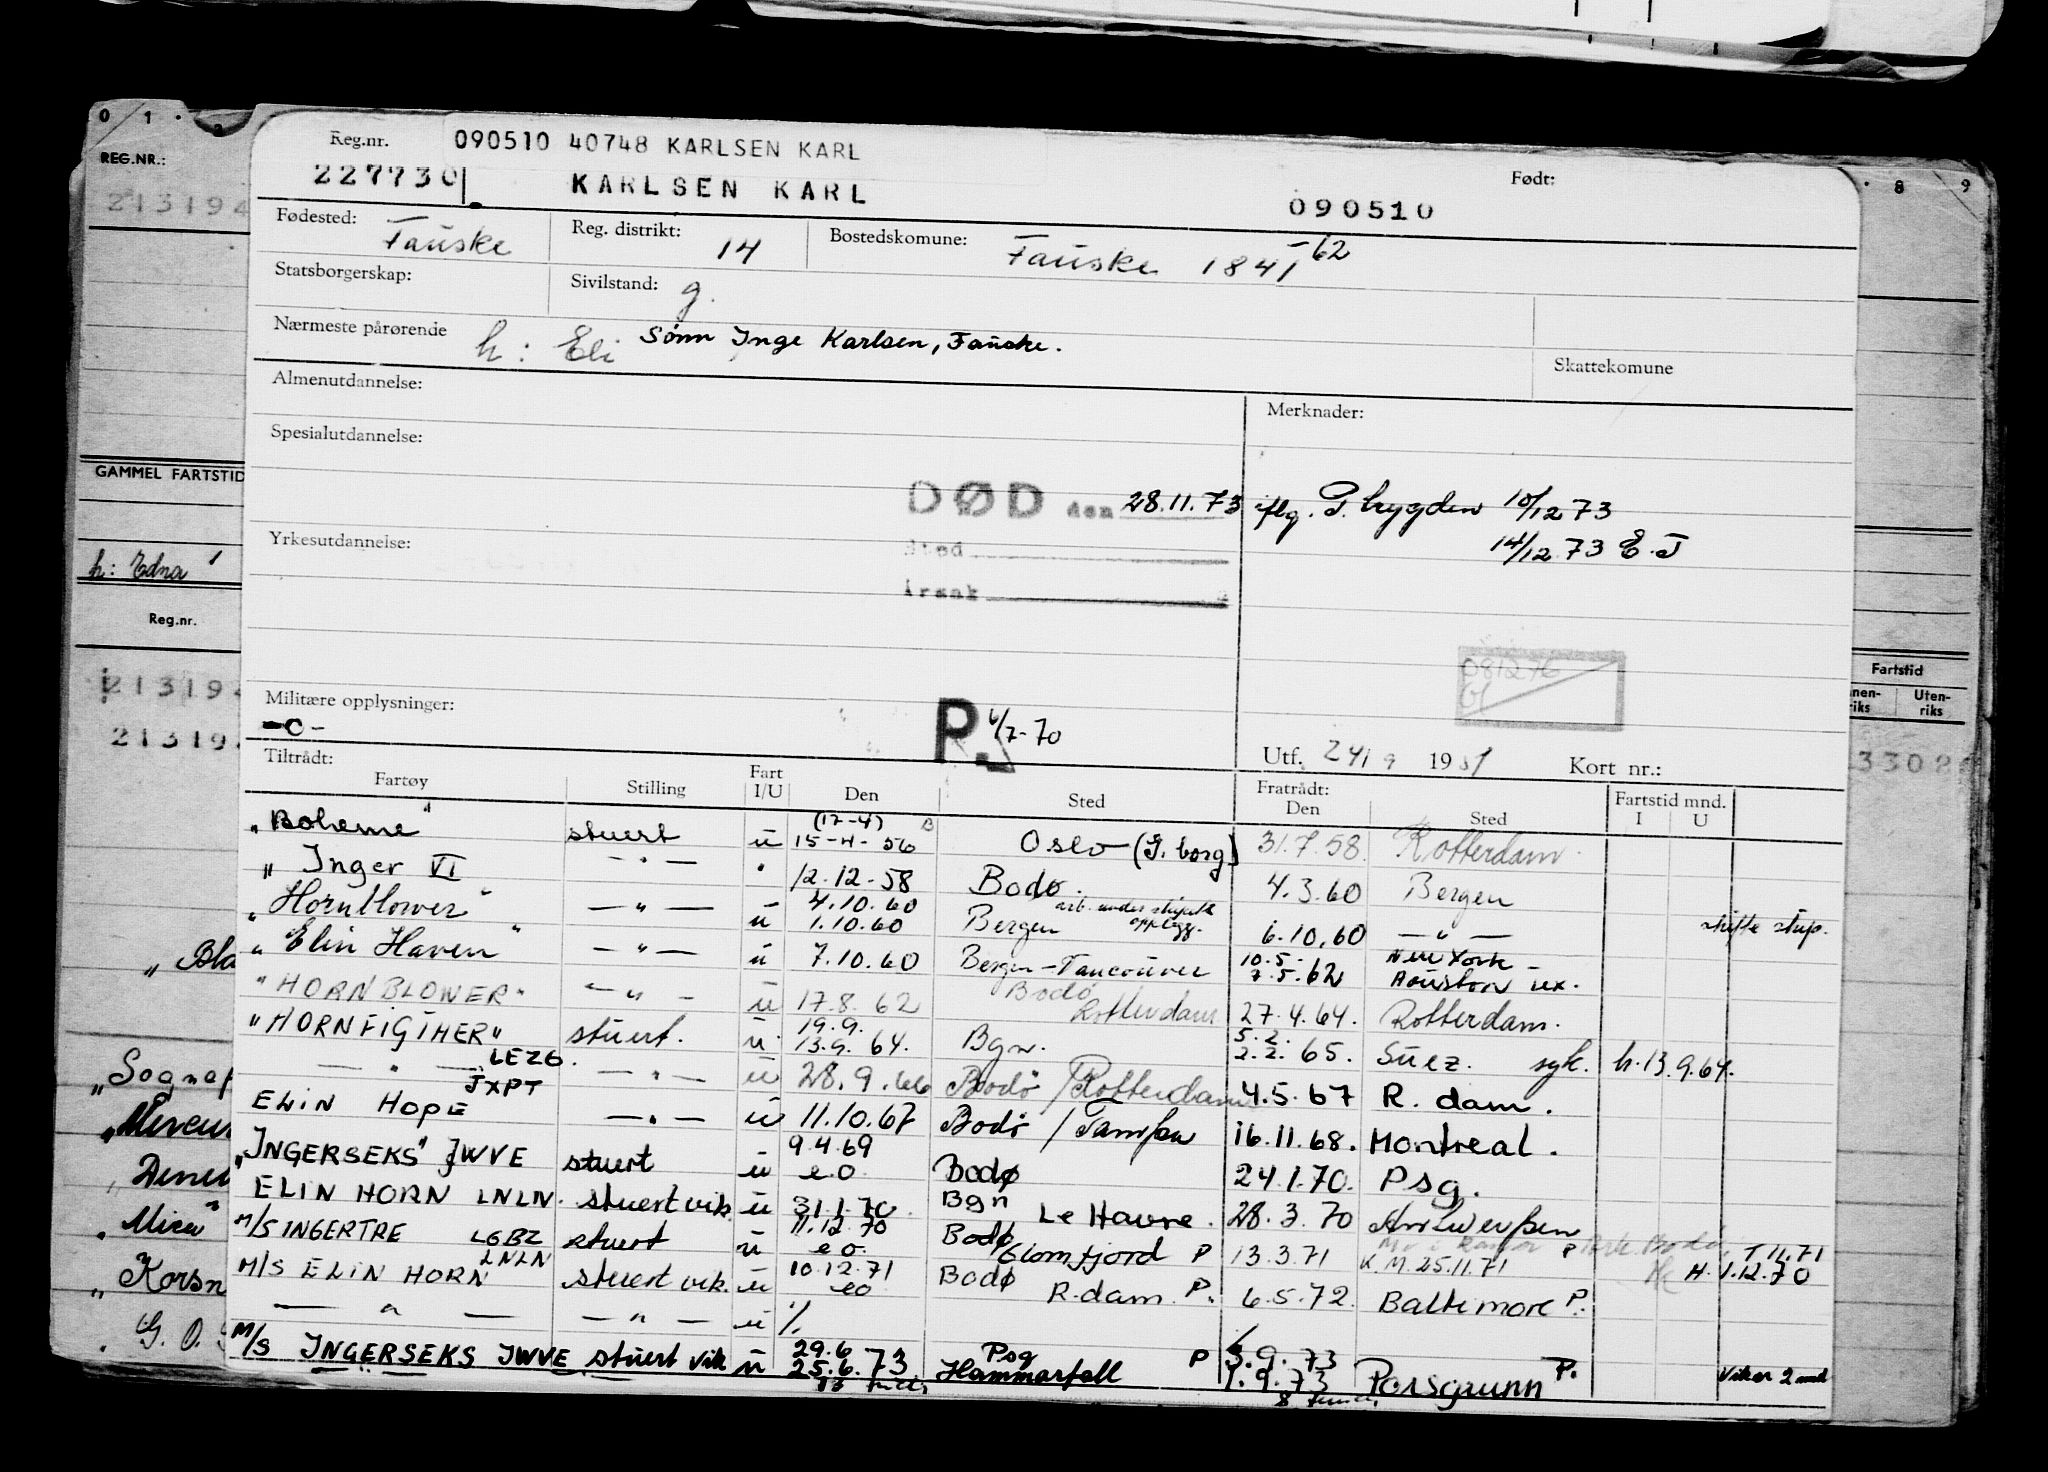 0 1 · 2
REG.NR.:
213194
GAMMEL FARTSTID
h: Edna
Reg.nr.
213194
21319
„Sognef
„Mercur
„Mica"
„Korsn
G. O.
8 9
Fartstid
nen- Uten-
riks riks
3308
Reg.nr. 090510 40748 KARLSEN KARL Født:
227730 KARLSEN KARL 090510
Fødested: Fauske Reg. distrikt: 14 Bostedskomune: Fauske 1841 -62
Statsborgerskap: Sivilstand: g.
Nærmeste pårørende h: Eli Sønn Inge Karlsen, Fauske.
Skattekomune
Almenutdannelse: Merknader:
Spesialutdannelse:
DØD den 28.11.73 iflg. P. trygden 10/12 73
14/12 73 E. J
Yrkesutdannelse: Sted
Årsak
081276
Militære opplysninger: P. 6/7-70
-o-
Utf. 24/9 19 Kort nr.:
Tiltrådt: Fratrådt:
Fartøy Stilling Fart I/U Den Sted Den Sted Fartstid mnd. I U
„Boheme" stuert u (17-4) 15-4-56 Oslo (G. borg) 31.7.58. Rotterdam.
„Inger VI — " — " 12.12-58 Bodø. 4.3.60 Bergen
„Hornblower" — " — u 4.10.60 1.10.60 Bergen arb. under skipets opplegg. 6.10.60 — " — skifte skip.
„Elin Haven" — " — u 7.10.60 Bergen-Vancouver 10.5.- 7.5.62 New York - Houston
"HORNBLOWER" — " — u 17.8.62 Bodø Rotterdam 27.4.64. Rotterdam.
"HORNFIGTHER" stuert. u. 19.9. 13.9.64. Bgn. 5.2. 2.2.65. Suez. syk. h.13.9.64.
— " — LEZG. — " — u 28.9.66 Bodø/Rotterdam 4.5.67 R. dam.
ELIN HOPE JXPT — " — u 11.10.67 Bodø / 16.11.68. Montreal.
„INGERSEKS" JWVE stuert u 9.4.69 e.o. Bodø 24.1.70. Psg.
ELIN HORN LNLN. stuert vik. u 31.1.70. Bgn Le Havre. 28.3.70 Antwerpen
M/S INGERTRE LGBZ stuert u 11.12.70 e.o. Bodø Glomfjord P 13.3.71 K.M. 25.11.71 P H. 1.12.70
M/S ELIN HORN LNLN stuert vik. u 10.12.71 eo Bodø R.dam. P. 6.5.72. Baltimore P.
— " — — " — u %
M/S INGERSEKS JWVE stuert vik u 29.6 25.6.73 Psg Hammarfall P 3.9.73 1.9.73 Porsgrunn P. Vikar 2 mnd